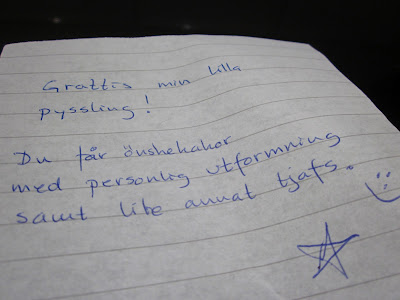 Grattis min lilla
pyssling!
Du får önskekakor
med personlig utformning
samt lite annat tjafs.